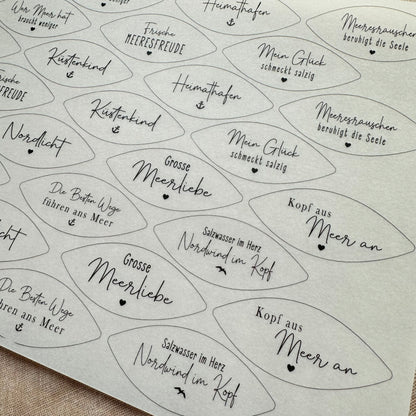 Wer Meer hat
braucht weniger
Frische
MEERESFREUDE
Heimathafen
Meeresrauschen
beruhigt die Seele
Küstenkind
Mein Glück
schmeckt salzig
Frische
MEERESFREUDE
Heimathafen
Meeresrauschen
beruhigt die Seele
Küstenkind
Mein Glück
schmeckt salzig
Nordlicht
Grosse
Meerliebe
Kopf aus
Meer an
Die Besten Wege
führen ans Meer
Salzwasser im Herz
Nordwind im Kopf
Nordlicht
Grosse
Meerliebe
Kopf aus
Meer an
Die Besten Wege
führen ans Meer
Salzwasser im Herz
Nordwind im Kopf